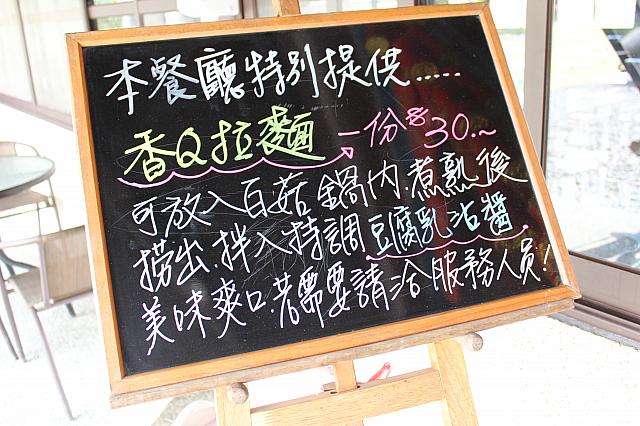 本餐廳特別提供.....
香Q拉麵 一份$30.~
可放入百菇鍋內.煮熟後
撈出.拌入特調豆腐乳沾醬
美味爽口.若需要請洽服務人員!